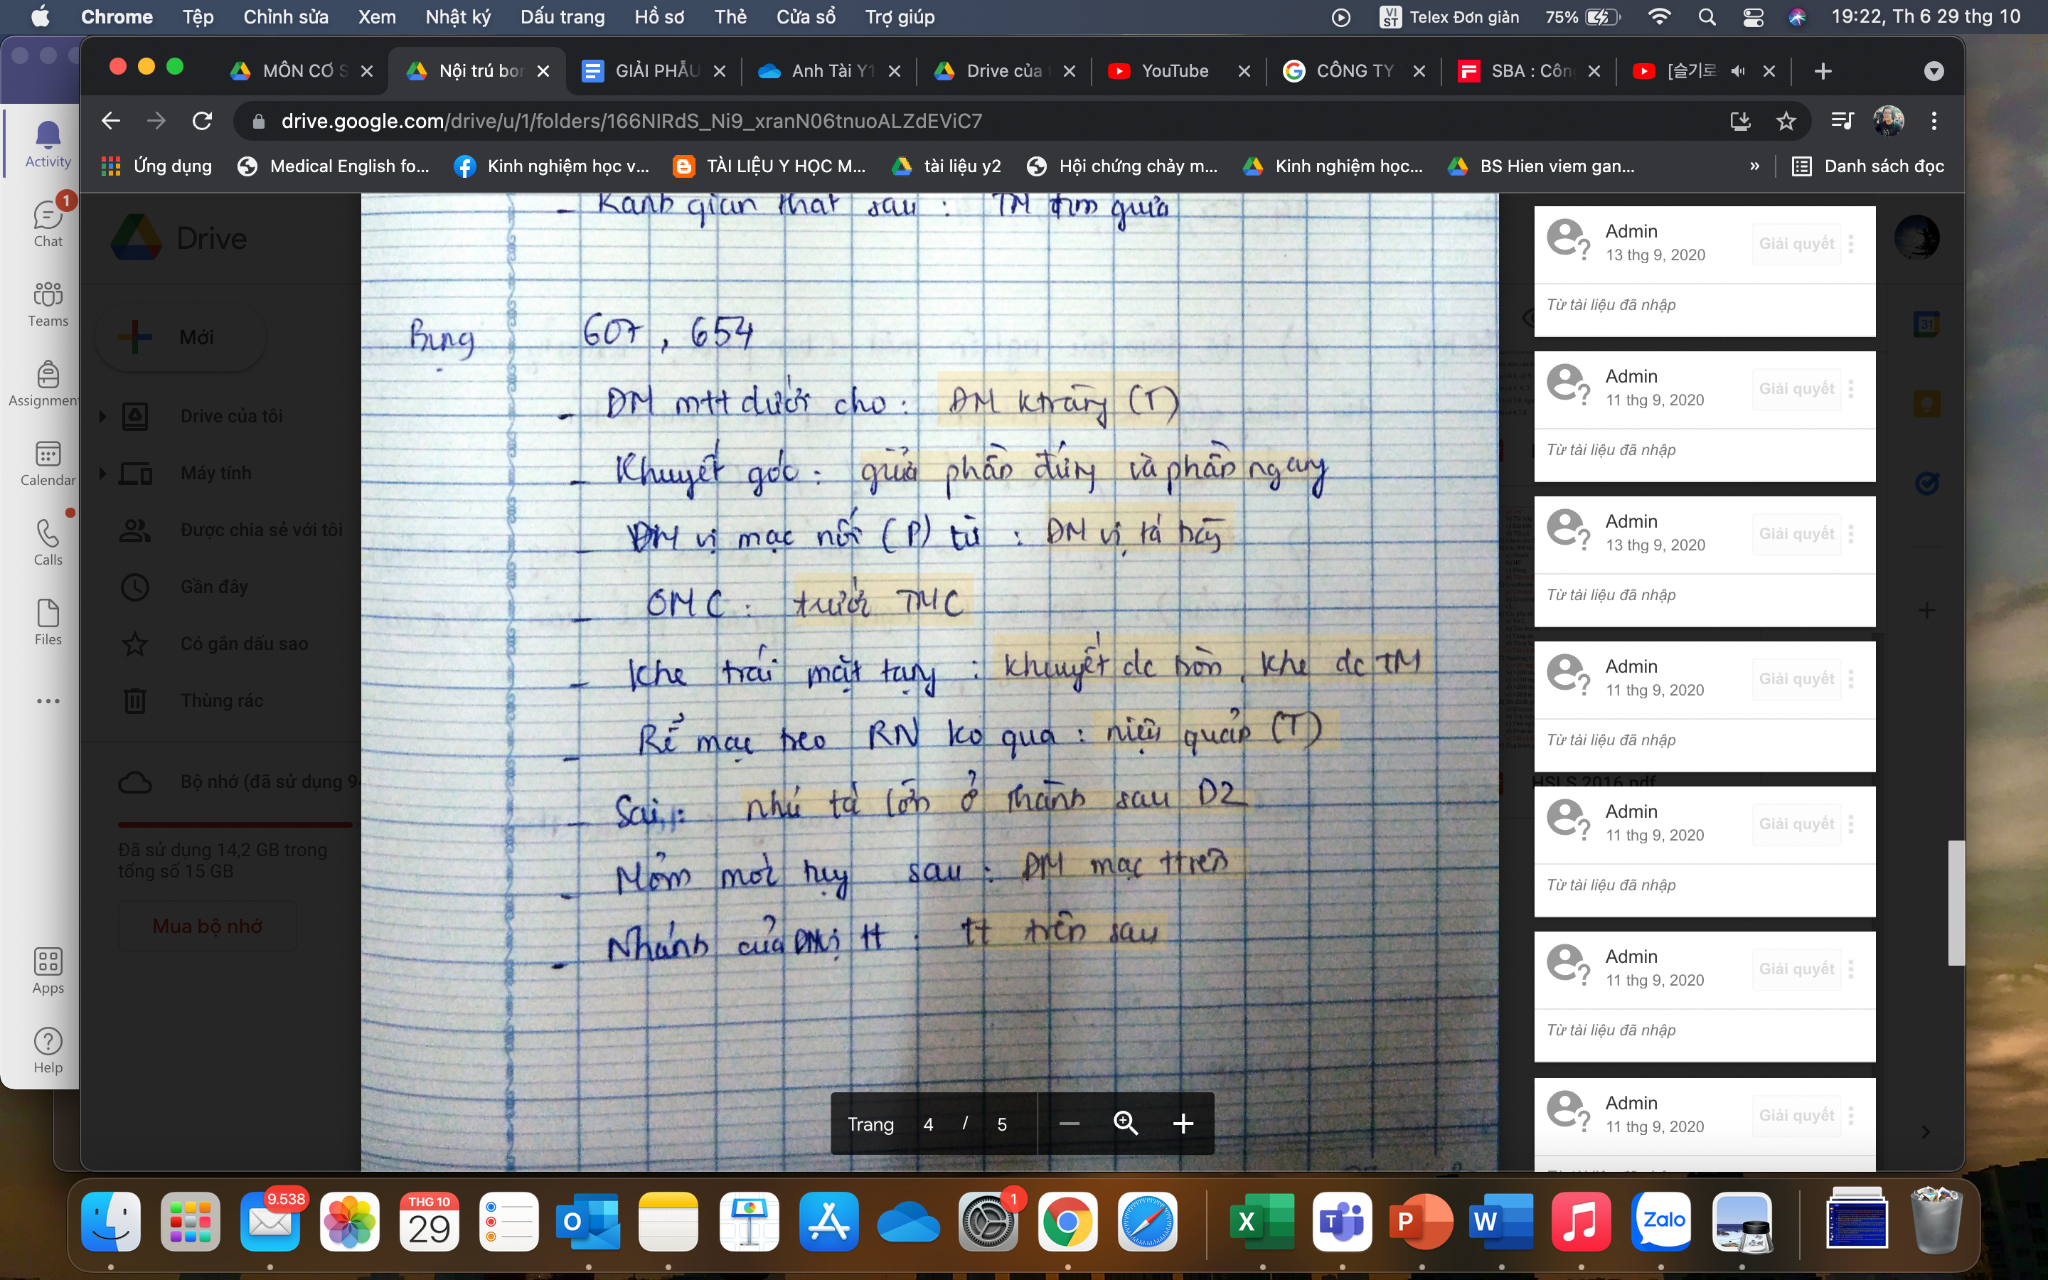 Chrome Tệp Chỉnh sửa Xem Nhật ký Dấu trang Hồ sơ Thẻ Cửa sổ Trợ giúp VI ST Telex Đơn giản 75% 19:22, Th 6 29 thg 10
MÔN CƠ S Nội trú bor GIẢI PHẪU Anh Tài Y1 Drive của t YouTube CÔNG TY SBA : Côn [슬기로
drive.google.com/drive/u/1/folders/166NIRdS_Ni9_xranN06tnuoALZdEViC7
Ứng dụng Medical English fo... Kinh nghiệm học v... TÀI LIỆU Y HỌC M... tài liệu y2 Hội chứng chảy m... Kinh nghiệm học... BS Hien viem gan... » Danh sách đọc
Activity
1
Chat
Teams
Assignmen
Calendar
Calls
Files
Apps
Help
Drive
Mới
Drive của tôi
Máy tính
Được chia sẻ với tôi
Gần đây
Có gắn dấu sao
Thùng rác
Bộ nhớ (đã sử dụng 9
Đã sử dụng 14,2 GB trong
tổng số 15 GB
Mua bộ nhớ
- Rãnh gian thất sau : TM tim giữa
Bụng 607, 654
- ĐM mtt dưới cho : ĐM ktràng (T)
- Khuyết góc : giữa phần đứng và phần ngang
- ĐM vị mạc nối (P) từ : ĐM vị tá tràng
- OMC : trước TMC
- Khe trái mặt tạng : khuyết dc tròn, khe dc TM
- Rễ mạc treo RN ko qua : niệu quản (T)
- Sai : nhú tá lớn ở thành sau D2
- Mỏm móc tụy sau : ĐM mạc ttrên
- Nhánh của ĐM vị tt : tt trên sau
Trang 4 / 5
Admin
13 thg 9, 2020
Giải quyết
Từ tài liệu đã nhập
Admin
11 thg 9, 2020
Giải quyết
Từ tài liệu đã nhập
Admin
13 thg 9, 2020
Giải quyết
Từ tài liệu đã nhập
Admin
11 thg 9, 2020
Giải quyết
Từ tài liệu đã nhập
Admin
11 thg 9, 2020
Giải quyết
Từ tài liệu đã nhập
Admin
11 thg 9, 2020
Giải quyết
Từ tài liệu đã nhập
Admin
11 thg 9, 2020
Giải quyết
HSLS 2016.pdf
31
9.538 THG 10 29 1 Zalo